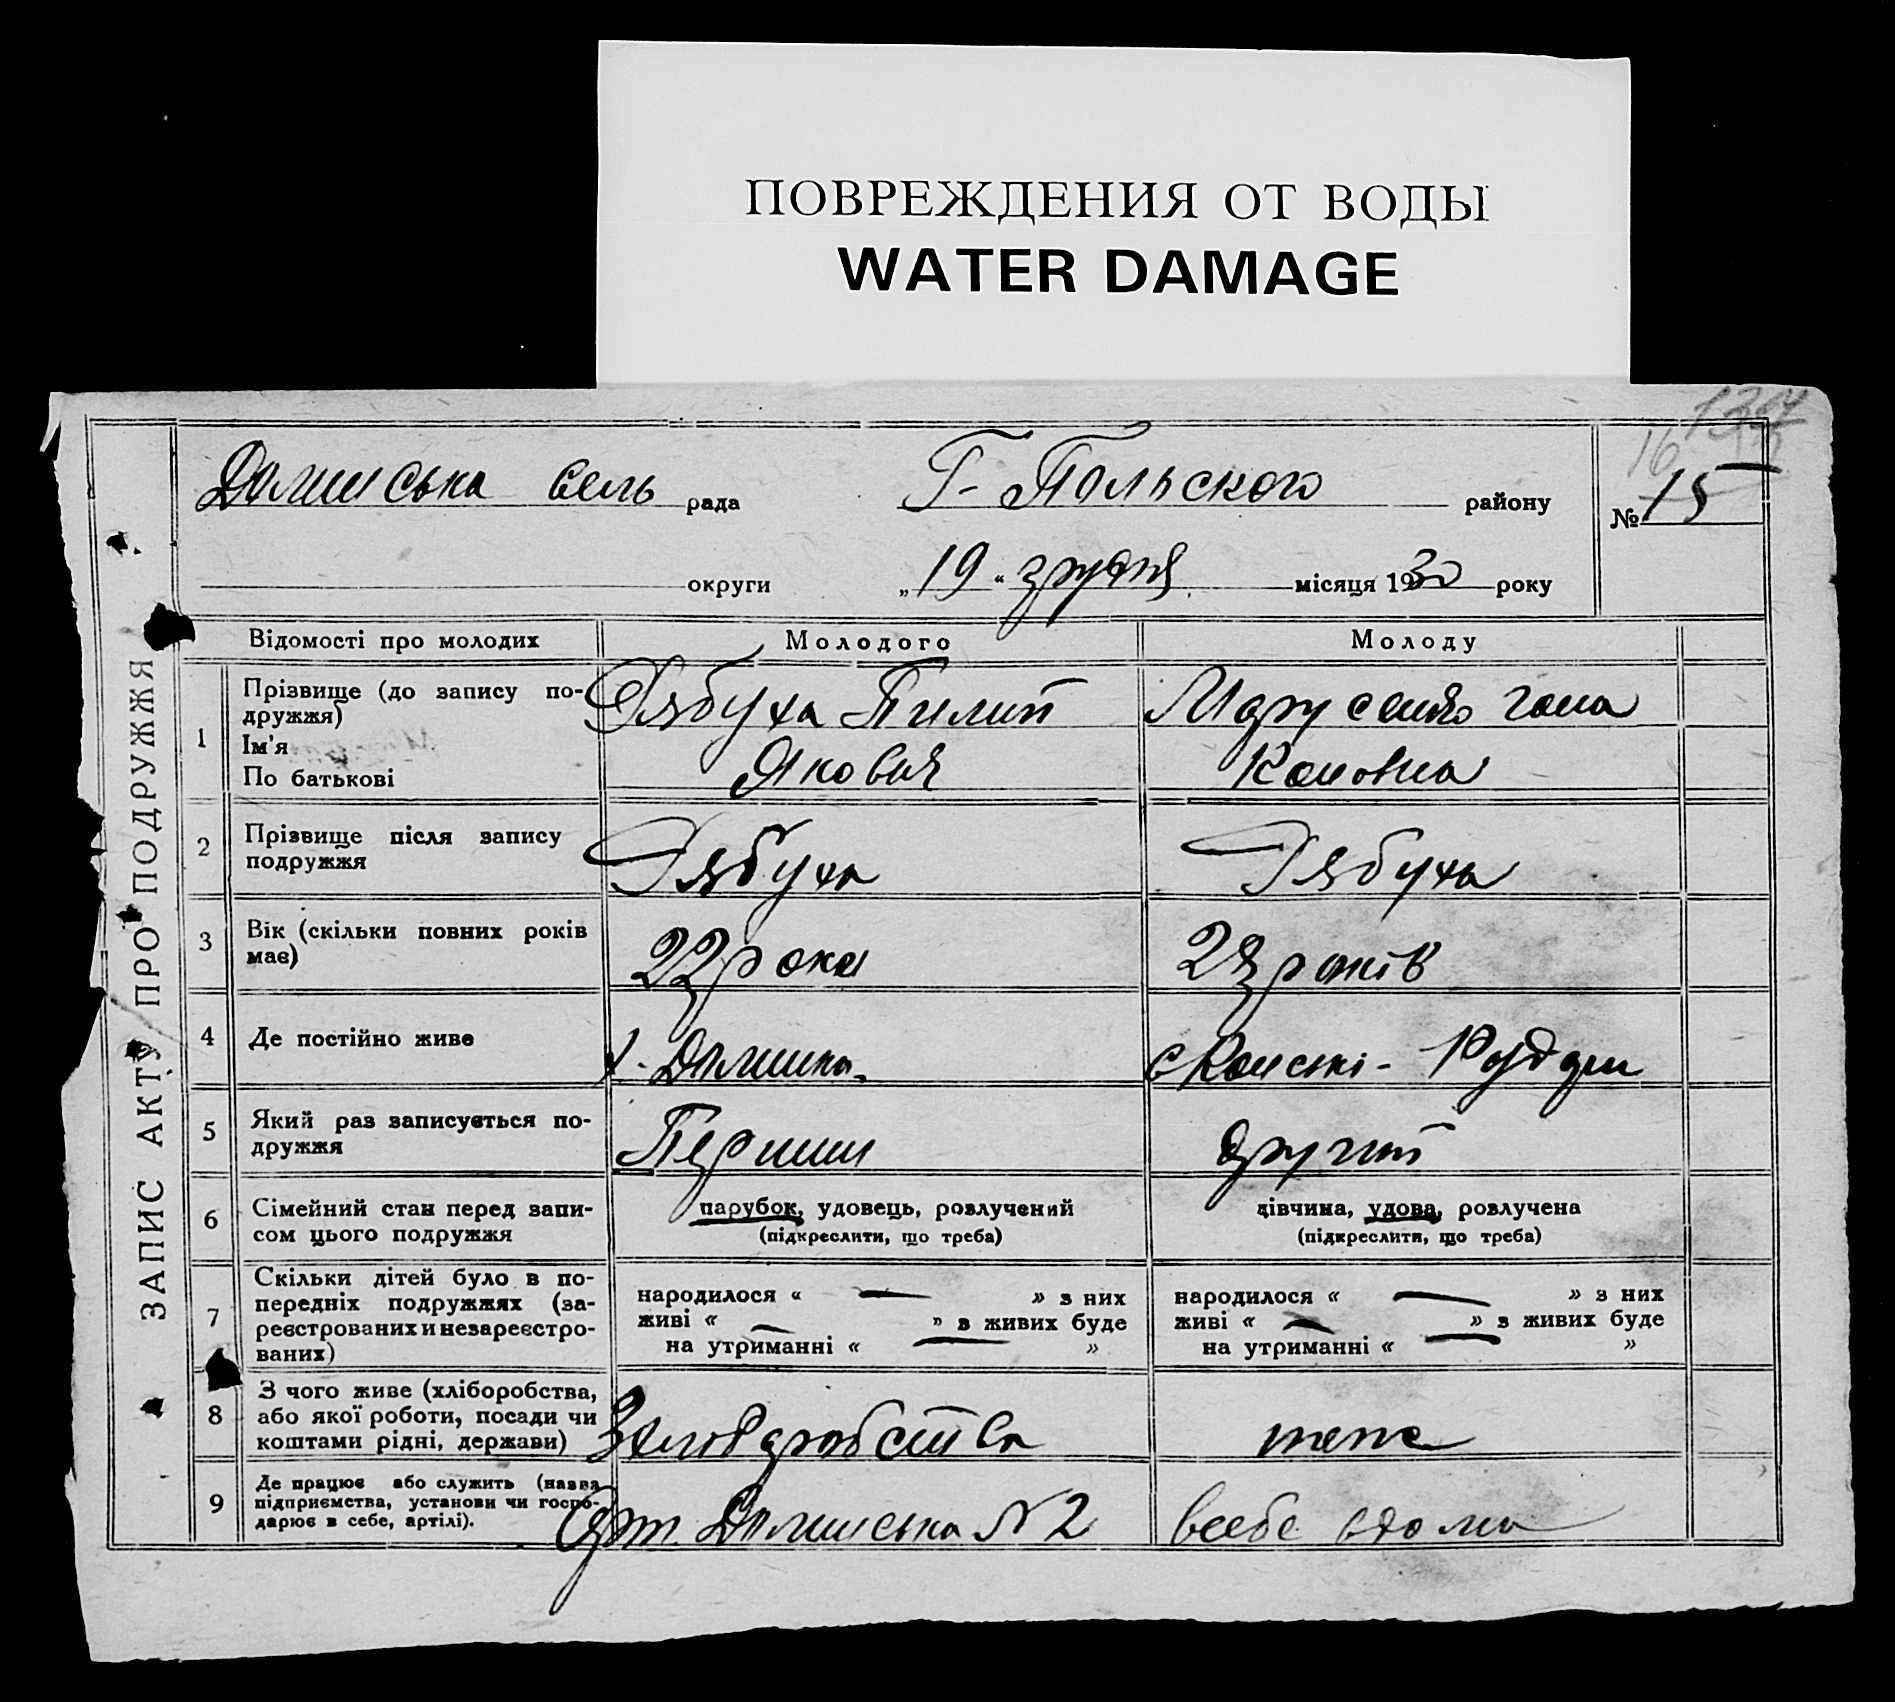 ПОВРЕЖДЕНИЯ ОТ ВОДЫ
WATER DAMAGE
ЗАПИС АКТУ ПРО ПОДРУЖЖЯ
16
Долинська сель рада Г-Польского району № 15
округи „19“ грудня місяця 1930 року
Відомості про молодих Молодого Молоду
1 Прізвище (до запису по-
дружжя)
Ім'я
По батькові
Рябуха Пилип
Якович
Марусенко
2 Прізвище після запису
подружжя
Рябуха Рябуха
3 Вік (скільки повних років
має)
22 рока років
4 Де постійно живе
х. Долинка.
5 Який раз записується по-
дружжя
Перший другий
6 Сімейний стан перед запи-
сом цього подружжя
парубок, удовець, розлучений
(підкреслити, що треба)
дівчина, удова, розлучена
(підкреслити, що треба)
7 Скільки дітей було в по-
передніх подружжях (за-
реєстрованих и незареєстро-
ваних)
народилося « — » з них
живі « — » з живих буде
на утриманні « — »
народилося « — » з них
живі « — » з живих буде
на утриманні « — »
8 З чого живе (хліборобства,
або якої роботи, посади чи
коштами рідні, держави)
теж
9 Де працює або служить (назва
підприємства, установи чи госпо-
дарює в себе, артілі).
Арт. Долинська N 2
всебе вдома